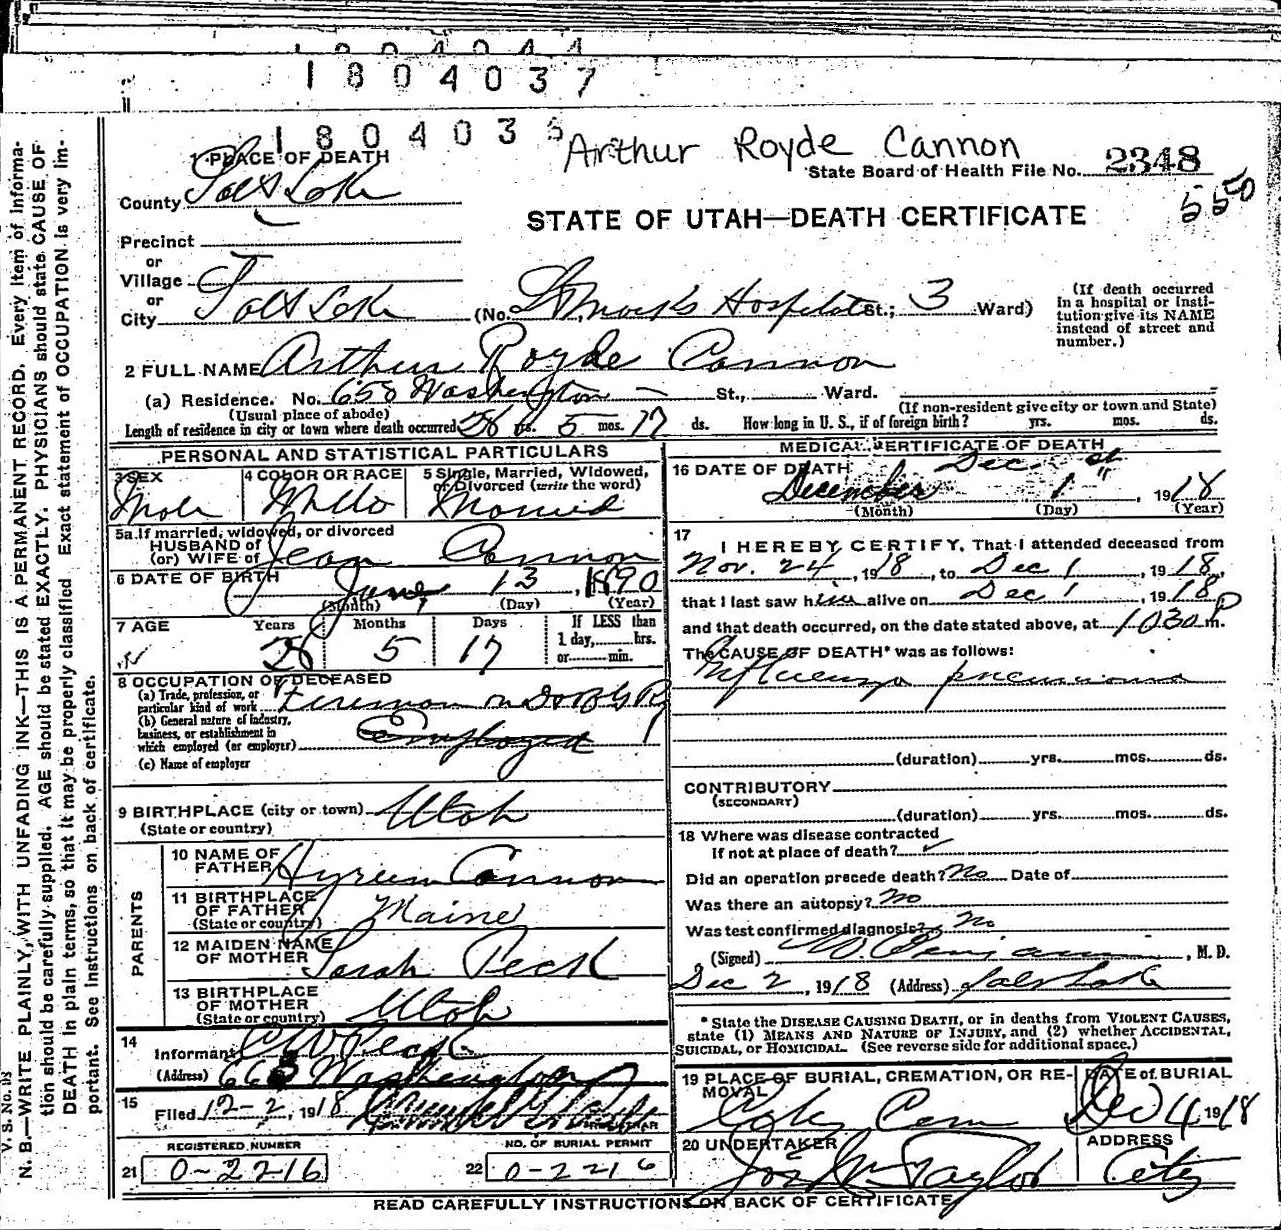 1804044
1804037
1804036
Arthur Royde Cannon
1 PLACE OF DEATH
State Board of Health File No. 2348
550
County Salt Lake
STATE OF UTAH—DEATH CERTIFICATE
Precinct
or
Village
or
City Salt Lake (No. St Marks Hospital St.; 3 Ward)
(If death occurred in a hospital or institution give its NAME instead of street and number.)
2 FULL NAME Arthur Royde Cannon
(a) Residence. No. 658 Washington St., Ward.
(Usual place of abode) (If non-resident give city or town and State)
Length of residence in city or town where death occurred 28 yrs. 5 mos. 17 ds. How long in U. S., if of foreign birth? yrs. mos. ds.
PERSONAL AND STATISTICAL PARTICULARS
3 SEX Male
4 COLOR OR RACE White
5 Single, Married, Widowed, or Divorced (write the word) Married
5a If married, widowed, or divorced
HUSBAND of
(or) WIFE of Jean Cannon
6 DATE OF BIRTH June 13, 1890
(Month) (Day) (Year)
7 AGE Years Months Days If LESS than
28 5 17 1 day, hrs.
or min.
8 OCCUPATION OF DECEASED
(a) Trade, profession, or
particular kind of work Fireman on D & R G R
(b) General nature of industry,
business, or establishment in
which employed (or employer) Employed
(c) Name of employer
9 BIRTHPLACE (city or town) Utah
(State or country)
PARENTS
10 NAME OF
FATHER Hyrum Cannon
11 BIRTHPLACE
OF FATHER Maine
(State or country)
12 MAIDEN NAME
OF MOTHER Sarah Peck
13 BIRTHPLACE
OF MOTHER Utah
(State or country)
14
Informant C W Peck
(Address) 663 Washington
15 Filed 12-2, 1918
REGISTRAR
REGISTERED NUMBER NO. OF BURIAL PERMIT
21 0-2216 22 0-2216
MEDICAL CERTIFICATE OF DEATH
16 DATE OF DEATH Dec 1st
December 1", 1918
(Month) (Day) (Year)
17
I HEREBY CERTIFY, That I attended deceased from
Nov. 24, 1918, to Dec 1, 1918,
that I last saw him alive on Dec 1, 1918
and that death occurred, on the date stated above, at 1030 P m.
The CAUSE OF DEATH* was as follows:
Influenza pneumonia
(duration) yrs. mos. ds.
CONTRIBUTORY
(SECONDARY)
(duration) yrs. mos. ds.
18 Where was disease contracted
If not at place of death?
Did an operation precede death? No Date of
Was there an autopsy? No
Was test confirmed diagnosis? No
(Signed) , M. D.
Dec 2, 1918 (Address) Salt Lake
*State the DISEASE CAUSING DEATH, or in deaths from VIOLENT CAUSES,
state (1) MEANS AND NATURE OF INJURY, and (2) whether ACCIDENTAL,
SUICIDAL, or HOMICIDAL. (See reverse side for additional space.)
19 PLACE OF BURIAL, CREMATION, OR RE-
MOVAL City Cem
DATE of BURIAL
Dec 4 1918
20 UNDERTAKER Jos Wm Taylor
ADDRESS City
READ CAREFULLY INSTRUCTIONS ON BACK OF CERTIFICATE
V. S. No. D5
N. B.—WRITE PLAINLY, WITH UNFADING INK—THIS IS A PERMANENT RECORD. Every item of informa-
tion should be carefully supplied. AGE should be stated EXACTLY. PHYSICIANS should state CAUSE OF
DEATH in plain terms, so that it may be properly classified. Exact statement of OCCUPATION is very im-
portant. See instructions on back of certificate.